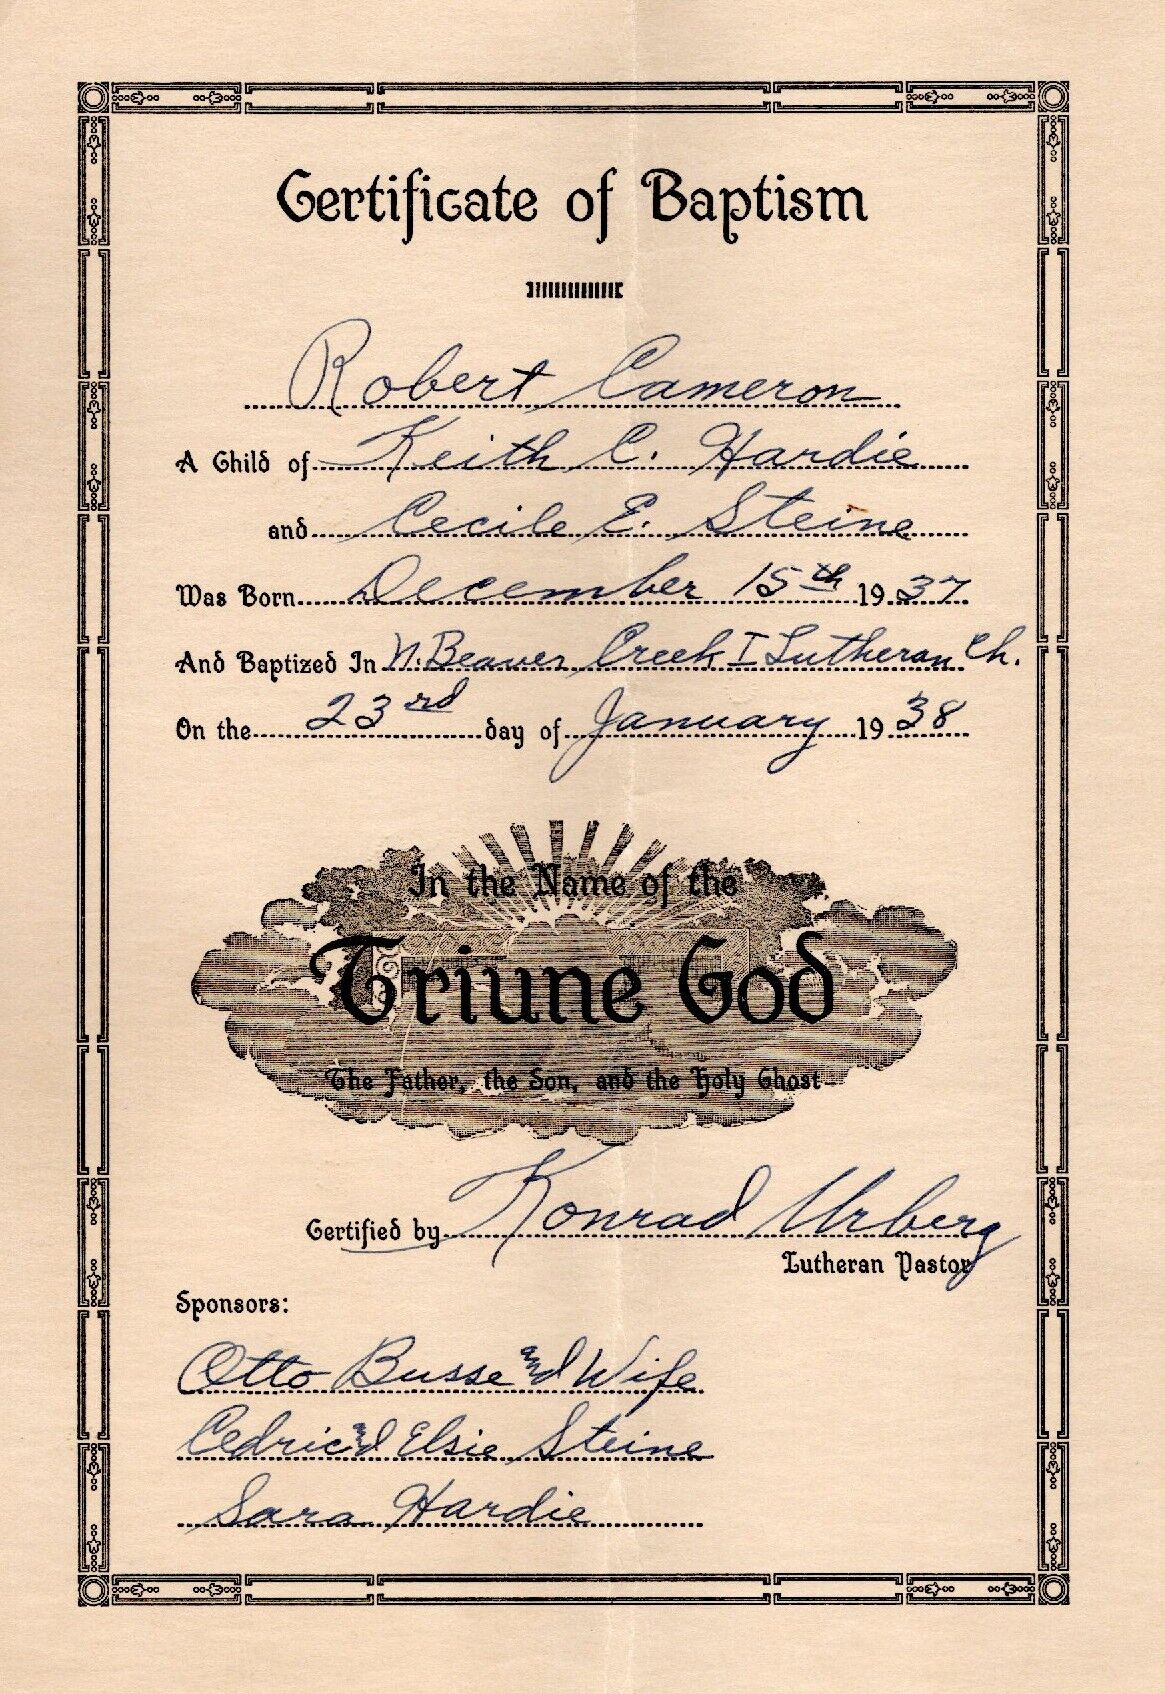 Certificate of Baptism
Robert Cameron
A Child of Keith C. Hardie
and Cecile E. Steine
Was Born December 15th 1937
And Baptized In N. Beaver Creek I Lutheran Ch.
On the 23rd day of January 1938
In the Name of the
Triune God
The Father, the Son, and the Holy Ghost
Certified by Konrad Urberg
Lutheran Pastor
Sponsors:
Otto Busse and Wife
Cedric and Elsie Steine
Sara Hardie